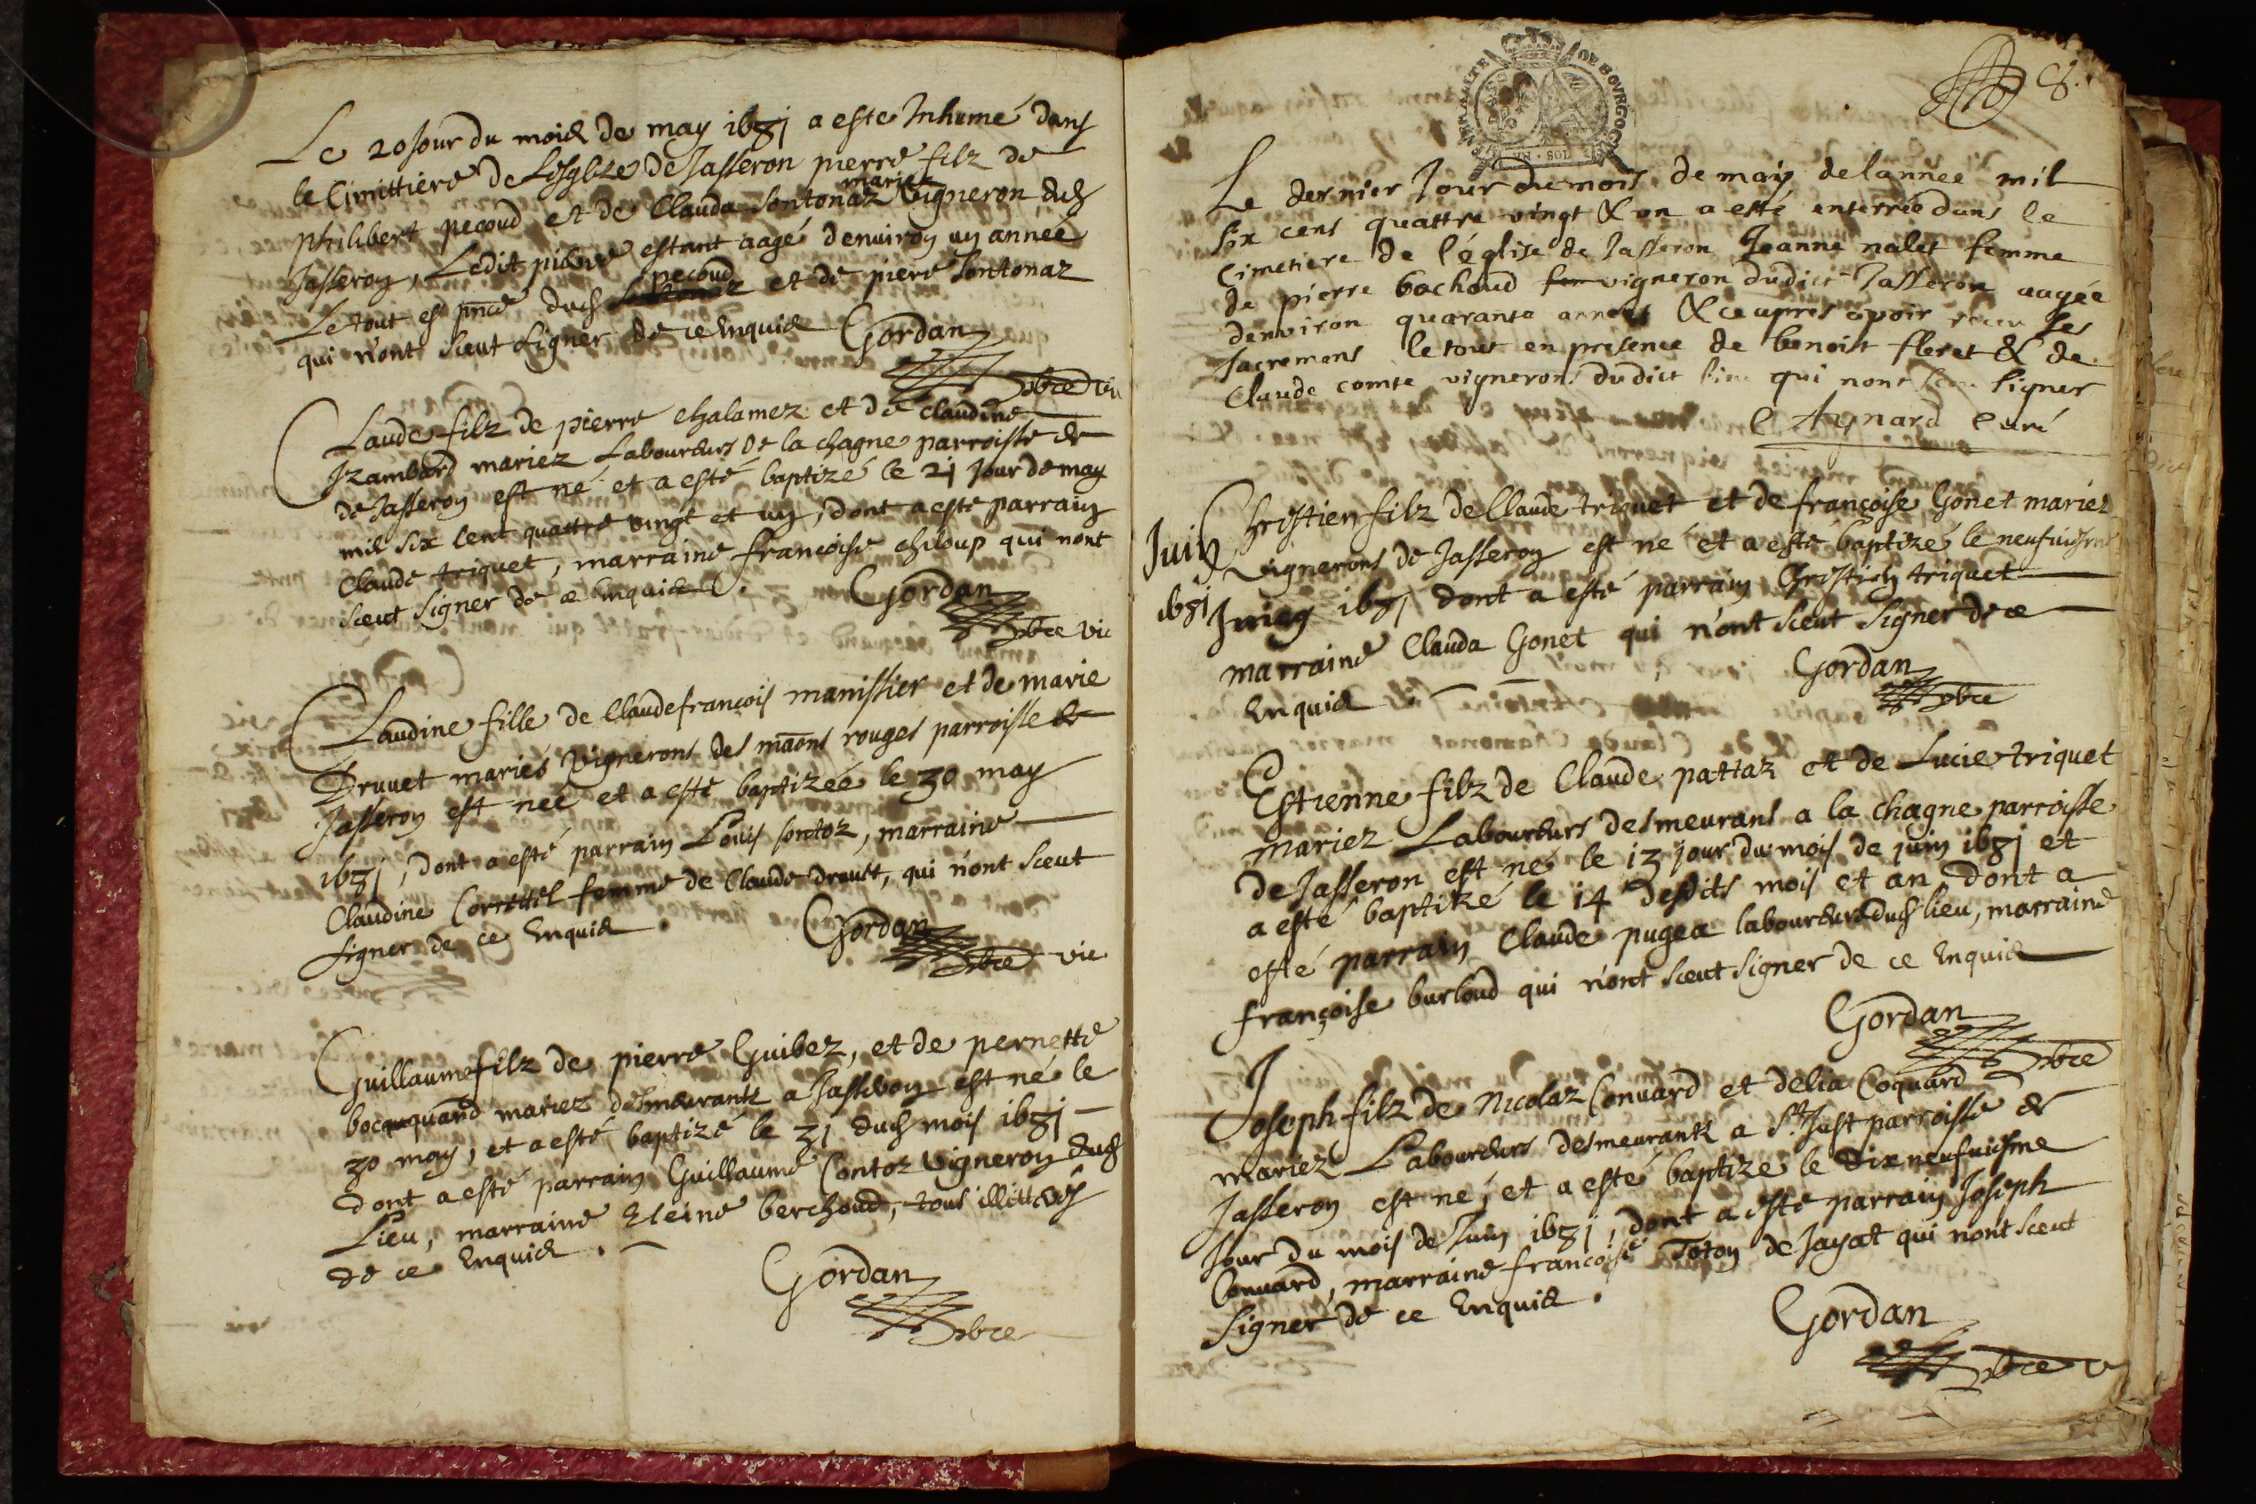 Le 20 Jour du mois de may 1681 a esté Inhumé dans
le Cimittiere de Lesglize de Jasseron pierre filz de
philibert pecoud et de Clauda Sontonaz mariez Vigneron dud
Jasseron, Ledit pierre estant aagé denviron un année
Le tout en pnce dud pecoud et de piere Sontonaz
qui n'ont sceut signer de ce Enquis Gordan
pbre vic
Claude filz de pierre chalamez et de claudine
Izambard mariez Laboureurs de la chagne parroisse de
de Jasseron est né et a esté baptizé le 21 Jour de may
mil six Cent quattre vingt et un, dont a esté parrain
Claude triquet, marraine françoise chiloup qui nont
sceut signer de ce Enquis. Gordan
pbre vic
Claudine fille de Claude françois manissier et de marie
Druuet mariés Vignerons des maons rouges parroisse de
Jasseron est née et a esté baptizée le 30 may
1681, dont a esté parrain Louis sontoz, marraine
Claudine femme de Claude drouet, qui n'ont sceut
signer de ce Enquis. Gordan
pbre vic
Guillaume filz de pierre Guibez, et de pernette
bocquand mariez desmeurantz a Jasseron est né le
30 may, et a esté baptizé le 31 dud mois 1681
dont a esté parrain Guillaume Contoz Vigneron dud
Lieu, marraine Eleine berchoud, tous illitterés
de ce Enquis.
Gordan
pbre
8.
GENERALITE DE BOURGOGNE
VN SOL
Le dernier Jour du mois de may de lannée mil
six cens quattre vingt & un a esté enterrée dans le
Cimetiere de l'église de Jasseron Jeanne nalet femme
de pierre bochoud vigneron dudict Jasseron aagée
denviron quarante années & ce apres avoir receu ses
sacremens le tout en presence de benoist floret & de
Claude comte vignerons dudict lieu qui nont sceu signer
C Aynard Curé
Juin
1681
Christien filz de Claude triquet et de françoise Gonet mariez
vignerons de Jasseron est né et a esté baptizé le neufuiesme
Juing 1681 dont a esté parrain Christien triquet
marraine Clauda Gonet qui n'ont sceut signer de ce
Enquis. Gordan
pbre
Estienne filz de Claude pattaz et de Lucie triquet
mariez Laboureurs desmeurans a la chagne parroisse
de Jasseron est né le 13 jour du mois de juin 1681 et
a esté baptizé le 14 desdits mois et an, dont a
esté parrain Claude pugea laboureurs dud lieu, marraine
françoise burloud qui n'ont sceut signer de ce Enquis
Gordan
pbre
Joseph filz de Nicolaz Convard et de lia Coquard
mariez Laboureurs desmeurantz a St Just parroisse de
Jasseron est né, et a esté baptizé le dixneufuiesme
Jour du mois de Juin 1681, dont a esté parrain Joseph
Convard, marraine françoise Toton de Jayat qui nont sceut
signer de ce Enquis.
Gordan
pbre v